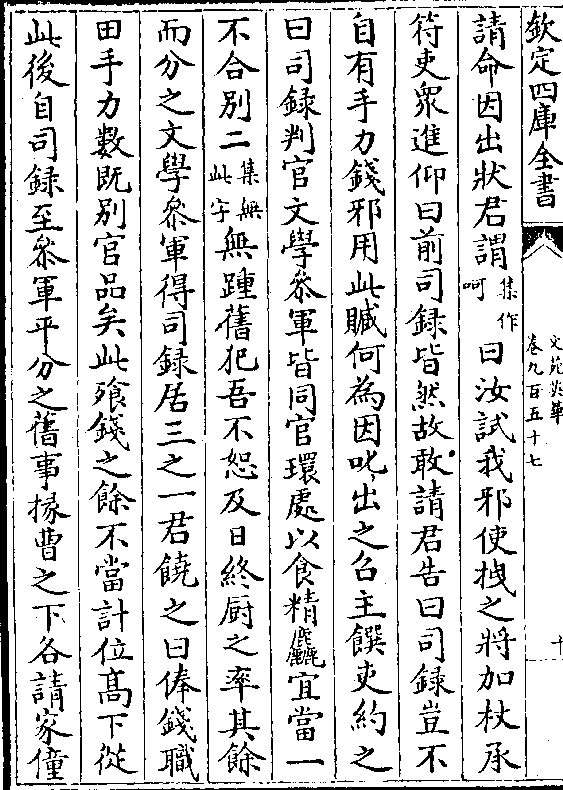 欽定四庫全書
文苑英華
卷九百五十七
十
請命因出狀君謂集作呵曰汝試我邪使拽之將加杖承
符吏衆進仰曰前司録皆然故敢請君告曰司録豈不
自有手力錢邪用此贓何為因叱出之召主饌吏約之
曰司録判官文學叅軍皆同官環處以食精麤宜當一
不合别二集無此字無踵舊犯吾不恕及日終厨之率其餘
而分之文學叅軍得司録居三之一君饒之曰俸錢職
田手力數既别官品矣此飱錢之餘不當計位髙下從
此後自司録至叅軍平分之舊事掾曹之下各請家僮